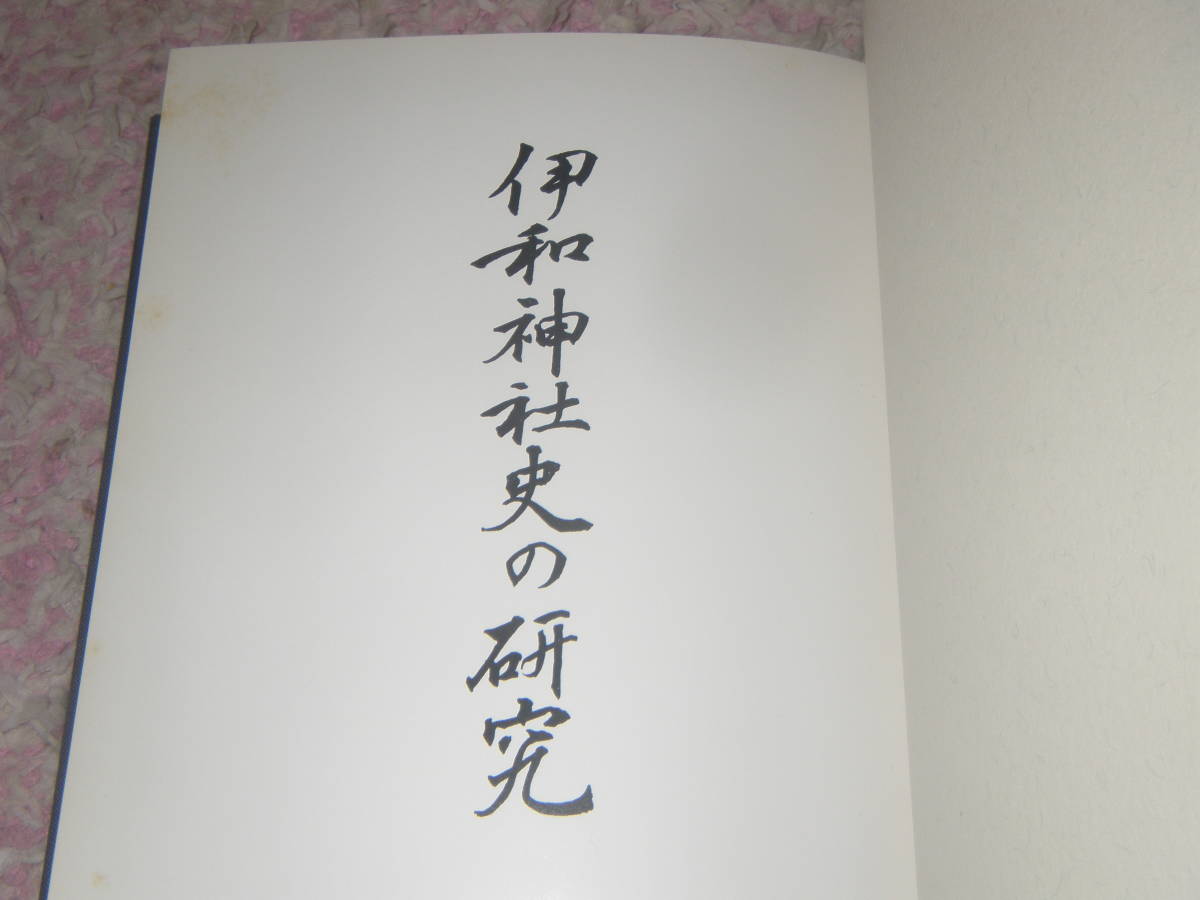 伊和神社史の研究